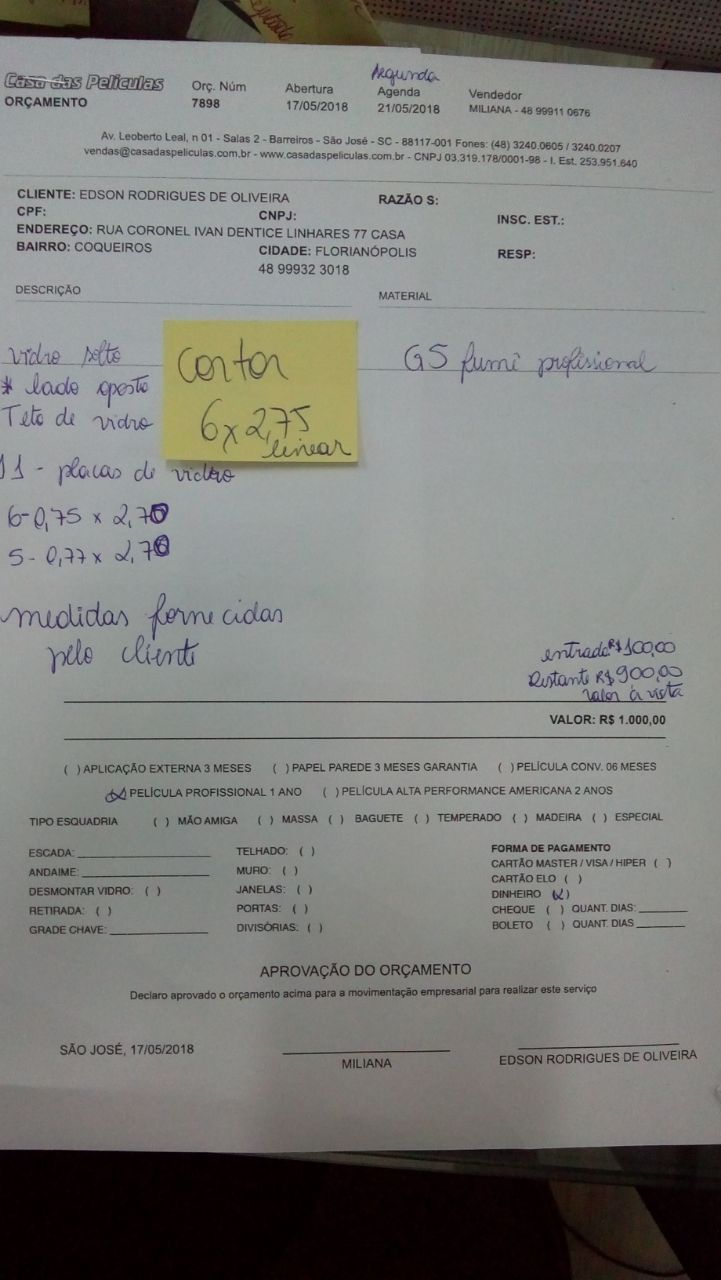 Segunda
Casa das Películas Orç. Núm Abertura Agenda Vendedor
ORÇAMENTO 7898 17/05/2018 21/05/2018 MILIANA - 48 99911 0676
Av. Leoberto Leal, n 01 - Salas 2 - Barreiros - São José - SC - 88117-001 Fones: (48) 3240.0605 / 3240.0207
vendas@casadaspeliculas.com.br - www.casadaspeliculas.com.br - CNPJ 03.319.178/0001-98 - I. Est. 253.951.640
CLIENTE: EDSON RODRIGUES DE OLIVEIRA RAZÃO S:
CPF: CNPJ: INSC. EST.:
ENDEREÇO: RUA CORONEL IVAN DENTICE LINHARES 77 CASA
BAIRRO: COQUEIROS CIDADE: FLORIANÓPOLIS RESP:
48 99932 3018
DESCRIÇÃO MATERIAL
vidro solto G5 fumê profissional
* lado oposto
Teto de vidro
cortar
6 x 2,75
linear
11 - placas de vidro
6 - 0,75 x 2,70
5 - 0,77 x 2,70
medidas fornecidas
pelo cliente
entrada R$ 100,00
Restante R$ 900,00
valor à vista
VALOR: R$ 1.000,00
( ) APLICAÇÃO EXTERNA 3 MESES ( ) PAPEL PAREDE 3 MESES GARANTIA ( ) PELÍCULA CONV. 06 MESES
(x) PELÍCULA PROFISSIONAL 1 ANO ( ) PELÍCULA ALTA PERFORMANCE AMERICANA 2 ANOS
TIPO ESQUADRIA ( ) MÃO AMIGA ( ) MASSA ( ) BAGUETE ( ) TEMPERADO ( ) MADEIRA ( ) ESPECIAL
ESCADA: TELHADO: ( ) FORMA DE PAGAMENTO
ANDAIME: MURO: ( ) CARTÃO MASTER / VISA / HIPER ( )
DESMONTAR VIDRO: ( ) JANELAS: ( ) CARTÃO ELO ( )
RETIRADA: ( ) PORTAS: ( ) DINHEIRO (x)
GRADE CHAVE: DIVISÓRIAS: ( ) CHEQUE ( ) QUANT. DIAS:
BOLETO ( ) QUANT. DIAS
APROVAÇÃO DO ORÇAMENTO
Declaro aprovado o orçamento acima para a movimentação empresarial para realizar este serviço
SÃO JOSÉ, 17/05/2018 MILIANA EDSON RODRIGUES DE OLIVEIRA